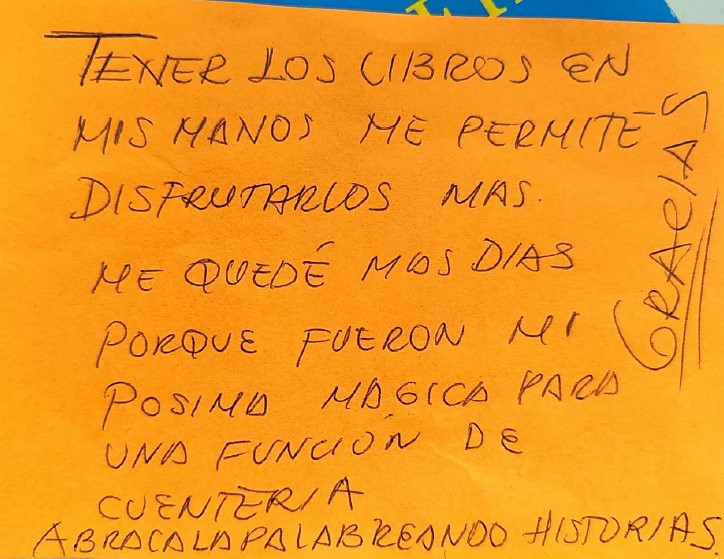 TENER LOS LIBROS EN
MIS MANOS ME PERMITE
DISFRUTARLOS MAS.
ME QUEDÉ MAS DIAS
PORQUE FUERON MI
POSIMA MÁGICA PARA
UNA FUNCIÓN DE
CUENTERIA
ABRACALAPALABREANDO HISTORIAS
GRACIAS